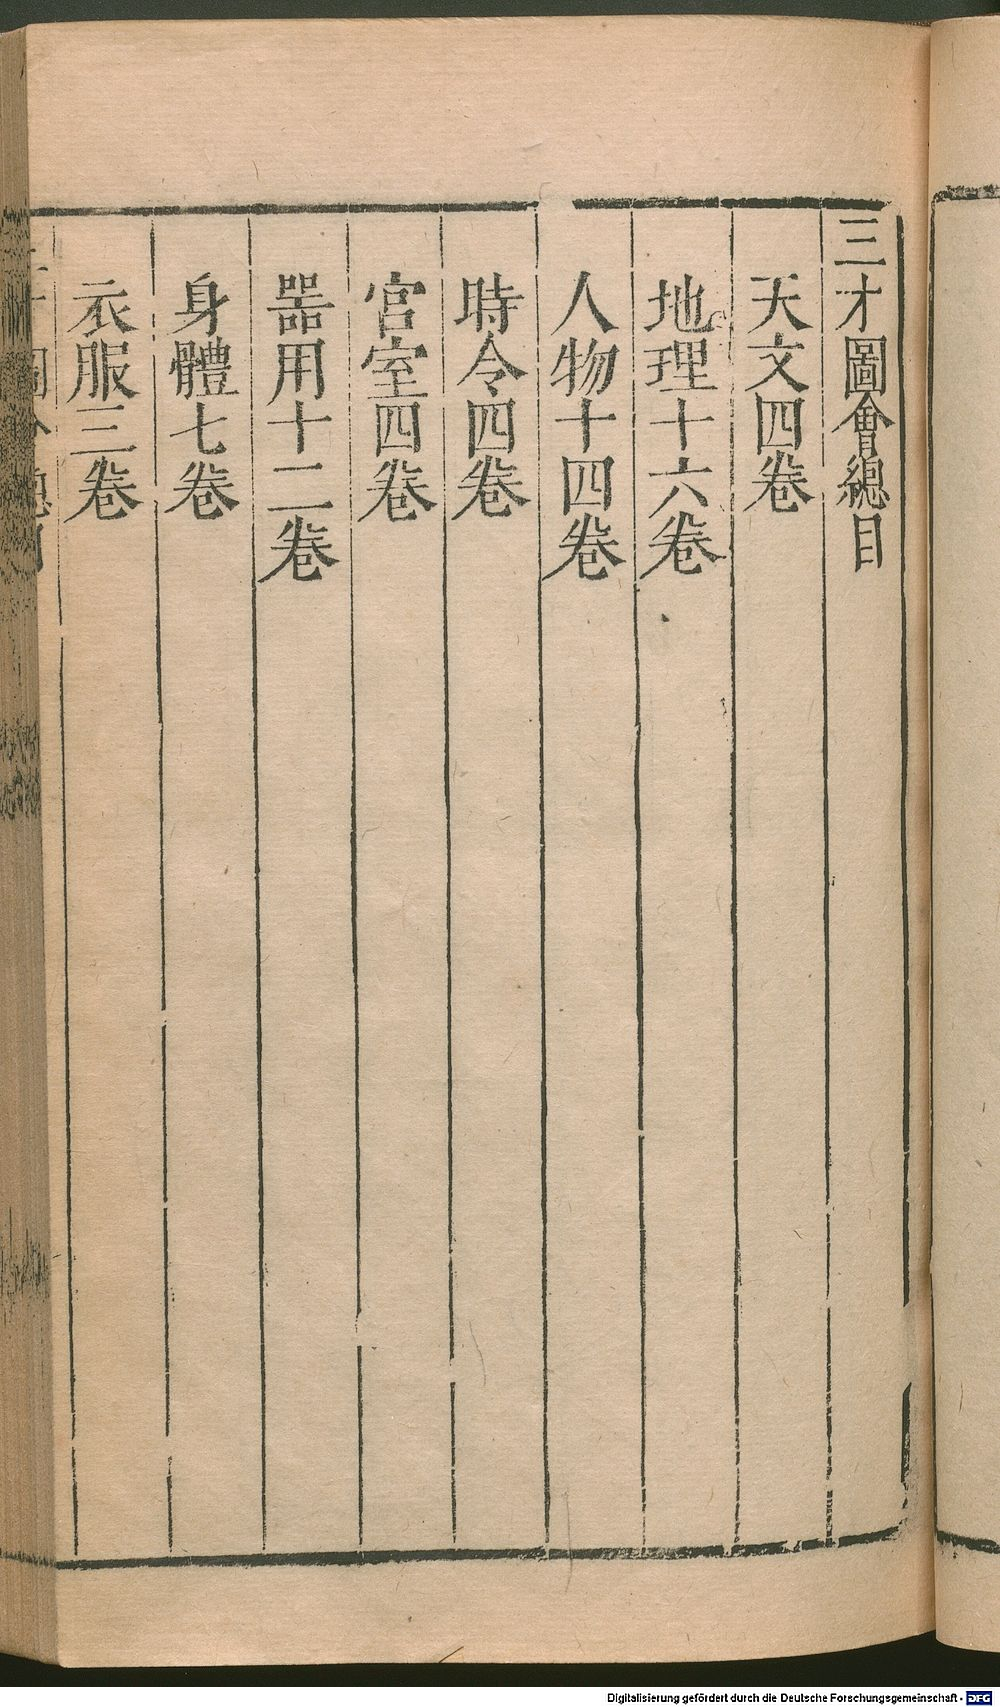 三才圖會總目
天文四卷
地理十六卷
人物十四卷
時令四卷
宮室四卷
器用十二卷
身體七卷
衣服三卷
Digitalisierung gefördert durch die Deutsche Forschungsgemeinschaft - DFG